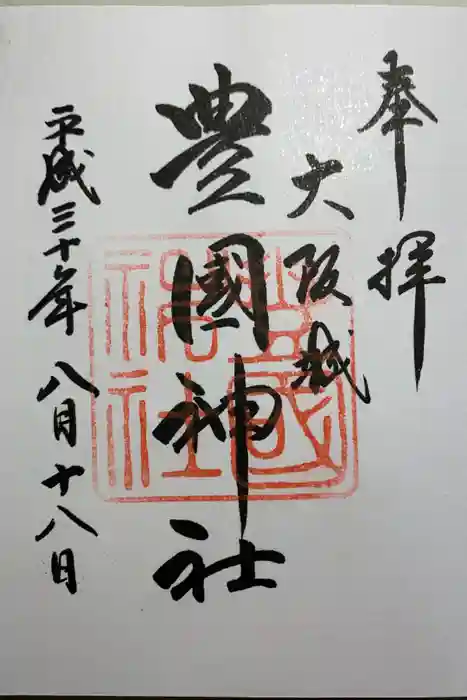 奉拝
大阪城
豊國神社
平成三十年八月十八日